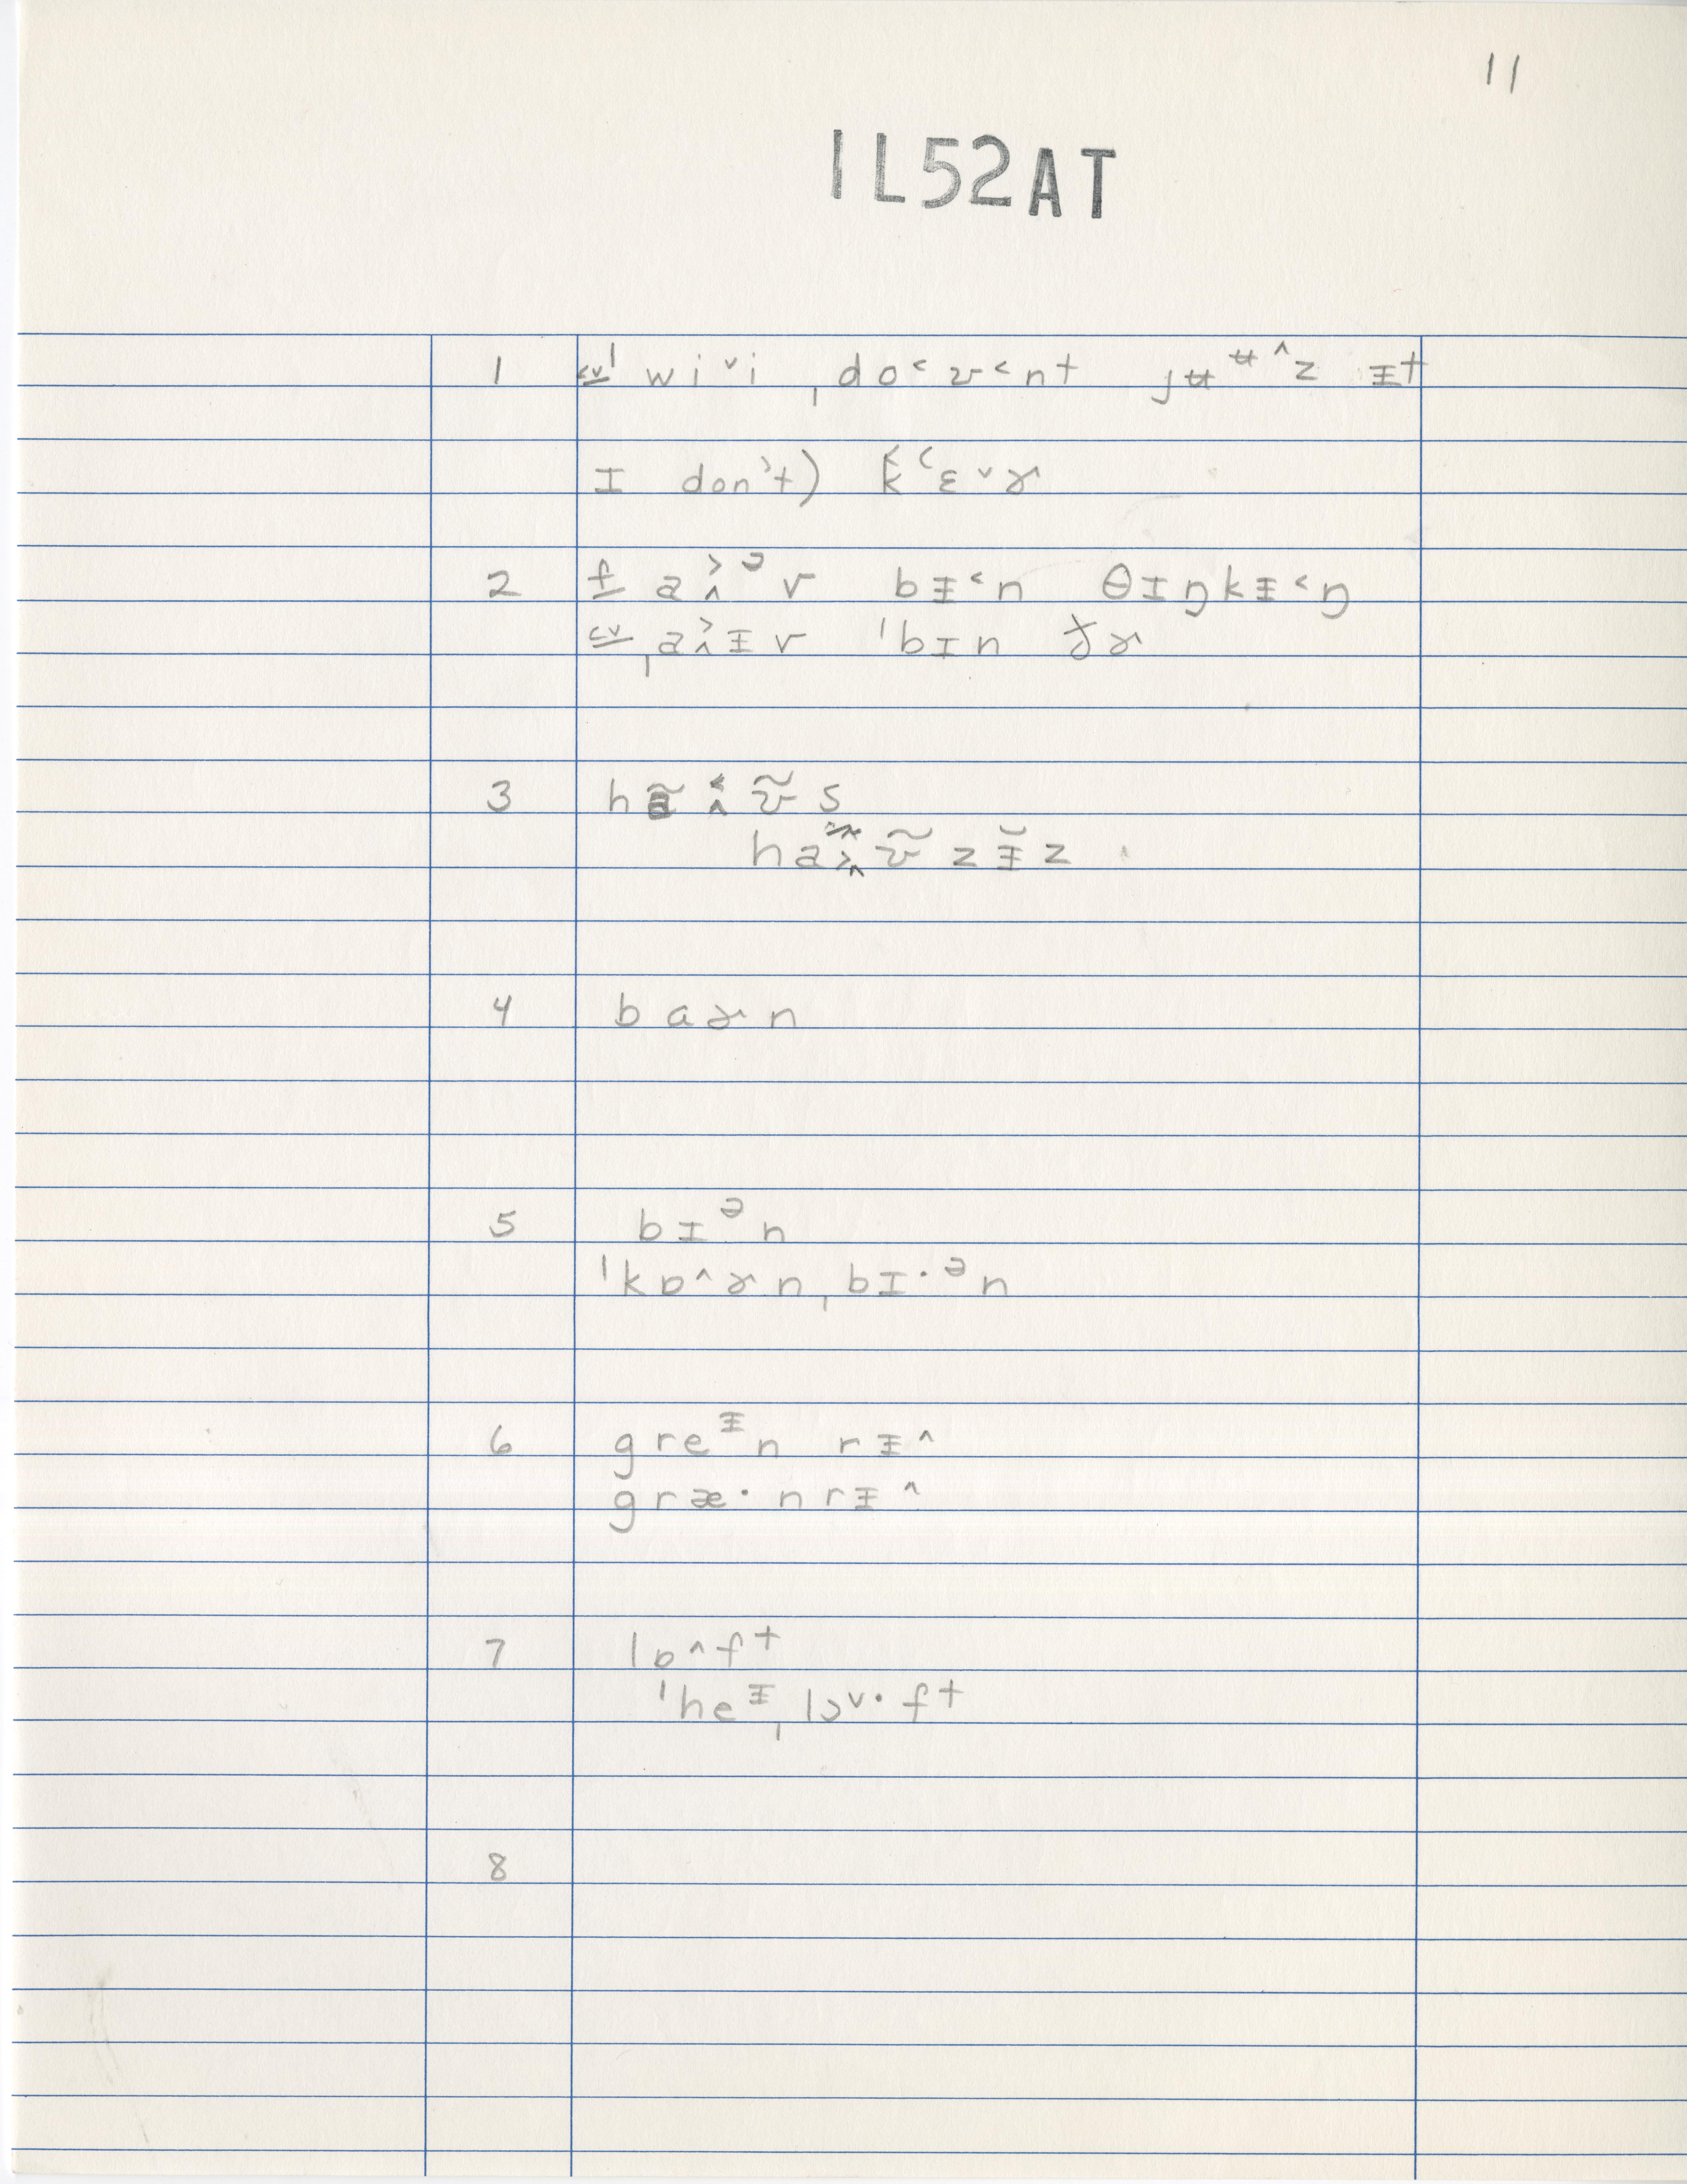 11
1L52AT
1 c̲v̲ ˈwiᵛi ˌdo˂ʊ˂nt jʉᶶ^z ᵻt
I don't) k̑˂ɛᵛɚ
2 f̲ a˃^ᵊv bᵻ˂n θɪŋkᵻ˂ŋ
c̲v̲ ˌa˃^ᵻv ˈbɪn ðɚ
3 h ʊ̃ s
ha ʊ̃ zᵻ̃z
4 baɚn
5 bɪᵊn
ˈkɒ^ɚnˌbɪ·ᵊn
6 greᶧn rᵻ^
græ·nrᵻ^
7 lɒ^ft
ˈheᶧˌlɔᵛ·ft
8